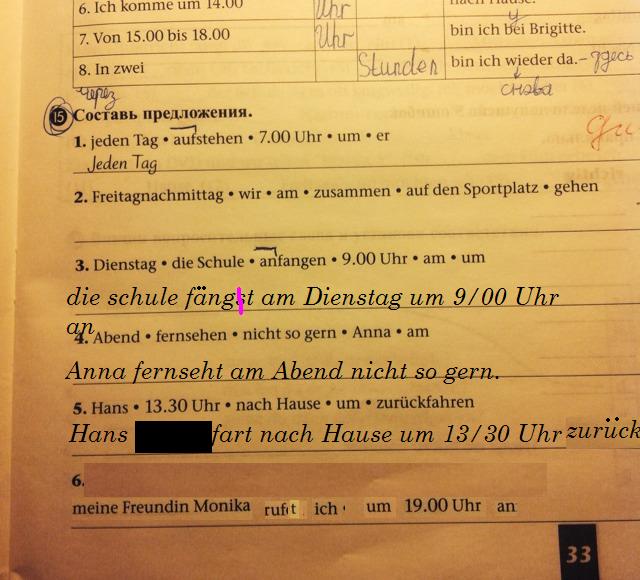 6. Ich komme um 14.00 Uhr nach Hause.
7. Von 15.00 bis 18.00 Uhr bin ich bei Brigitte.
8. In zwei Stunden bin ich wieder da. - здесь
через снова
15 Составь предложения.
1. jeden Tag • aufstehen • 7.00 Uhr • um • er
Jeden Tag
2. Freitagnachmittag • wir • am • zusammen • auf den Sportplatz • gehen
3. Dienstag • die Schule • anfangen • 9.00 Uhr • am • um
die schule fängst am Dienstag um 9/00 Uhr
an
4. Abend • fernsehen • nicht so gern • Anna • am
Anna fernseht am Abend nicht so gern.
5. Hans • 13.30 Uhr • nach Hause • um • zurückfahren
Hans fart nach Hause um 13/30 Uhr zurück
6.
meine Freundin Monika ruft ich um 19.00 Uhr an
33